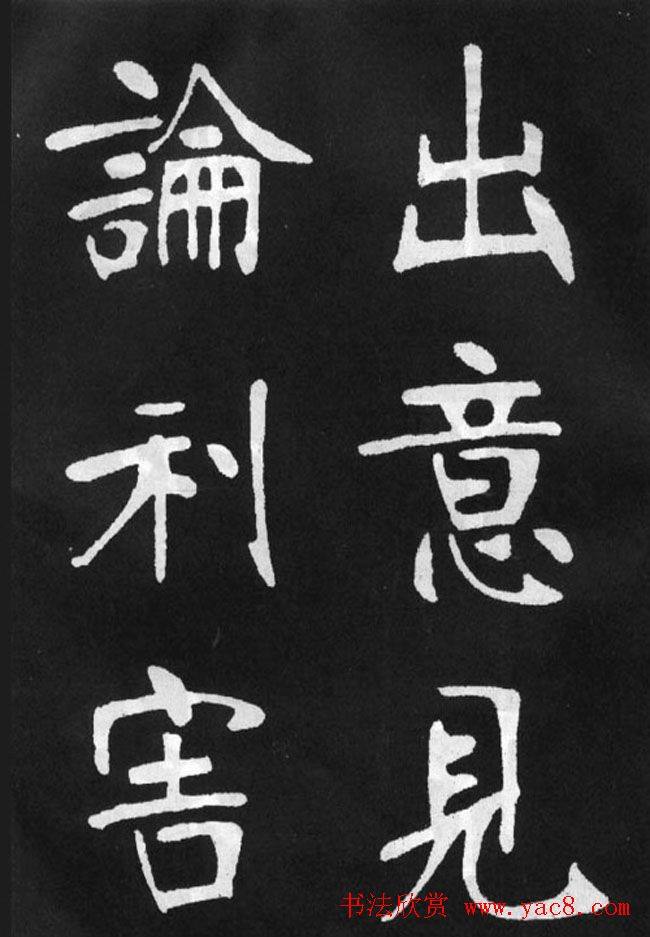 出意見
論利害
书法欣赏 www.yac8.com